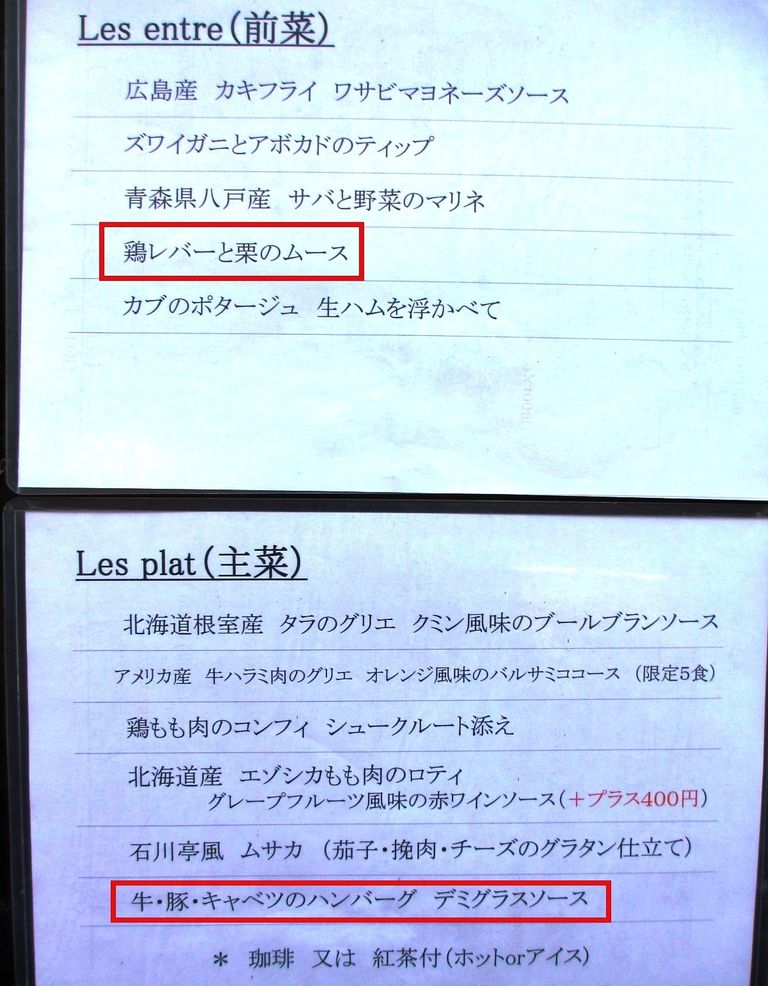 Les entre(前菜)
広島産　カキフライ　ワサビマヨネーズソース
ズワイガニとアボカドのティップ
青森県八戸産　サバと野菜のマリネ
鶏レバーと栗のムース
カブのポタージュ　生ハムを浮かべて
Les plat(主菜)
北海道根室産　タラのグリエ　クミン風味のブールブランソース
アメリカ産　牛ハラミ肉のグリエ　オレンジ風味のバルサミココース　(限定5食)
鶏もも肉のコンフィ　シュークルート添え
北海道産　エゾシカもも肉のロティ
グレープフルーツ風味の赤ワインソース(＋プラス400円)
石川亭風　ムサカ　(茄子・挽肉・チーズのグラタン仕立て)
牛・豚・キャベツのハンバーグ　デミグラスソース
＊　珈琲　又は　紅茶付(ホットorアイス)